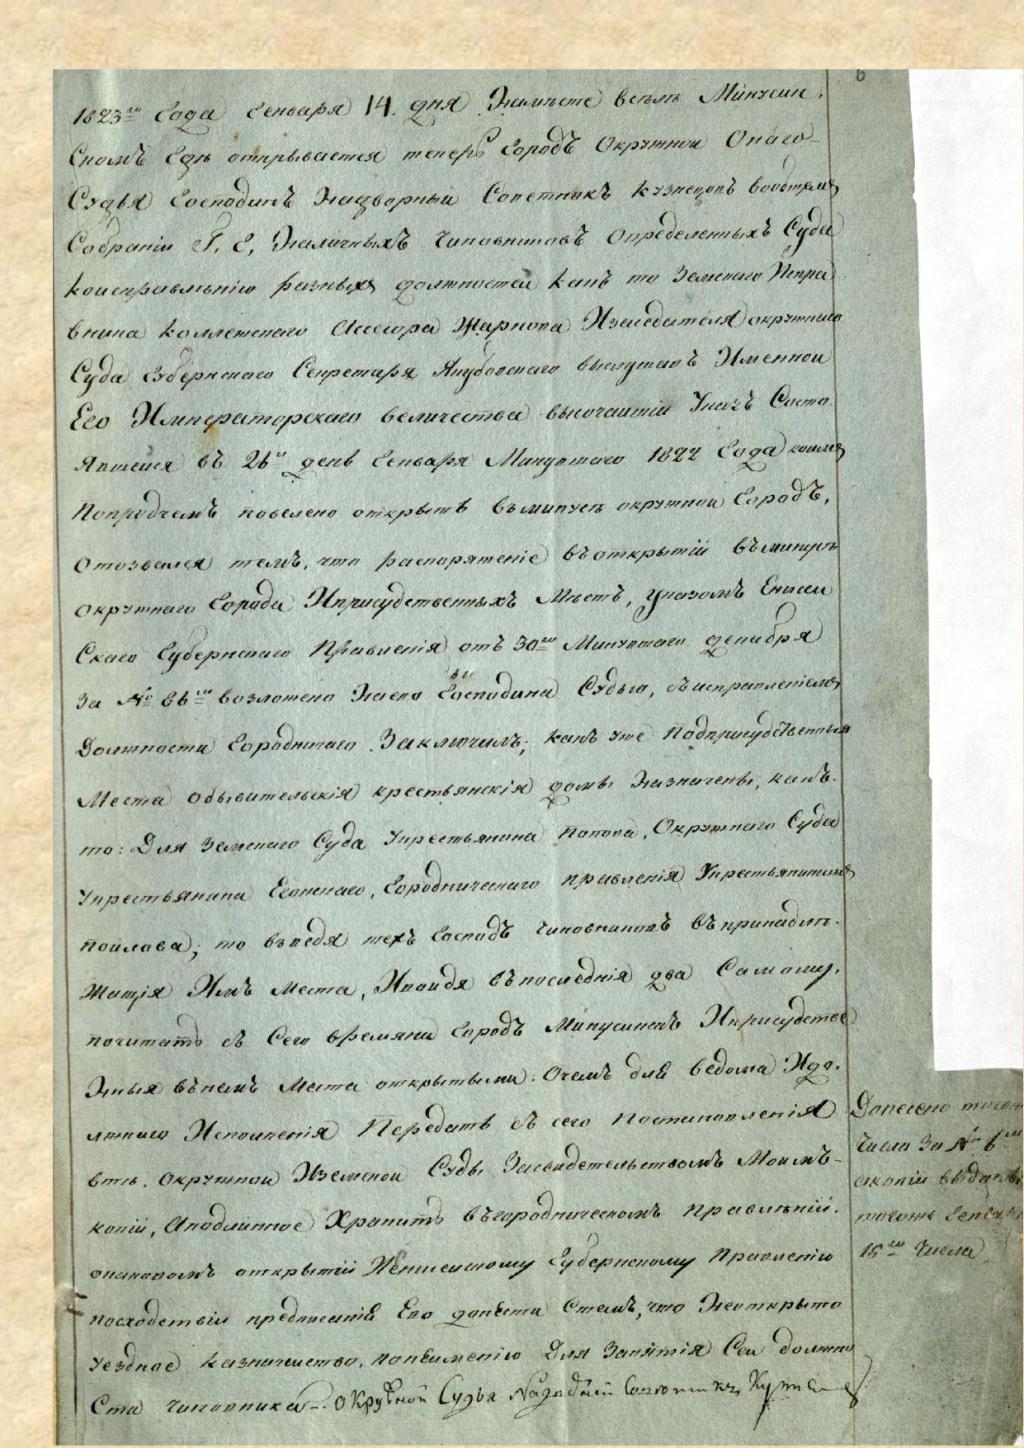 6
1823го Года Генваря 14. дня Намѣсте всѣмъ Минусин
скомъ Гдѣ открывается теперь Городъ Окружной Онаго
Судья Господинъ Надворный Советникъ Кузнецовъ вообщемъ
Собраніи Г. Г. Наличныхъ Чиновниковъ Определенныхъ Суда
Коисправленію разныхъ должностей какъ то Земскаго Испра
вника Коллежскаго Ассесора Жаркова Изаседателя окружнаго
Суда Губернскаго Секретаря Якубовскаго выслушавъ Именной
Его Императорскаго величества высочайшій Указъ Состо
явшейся въ 26й день Генваря Минувшаго 1822 Года коимъ
Попрочемъ повелено открыть въминуск окружной Городъ,
отозвался темъ, что распоряженіе въоткрытіи въминуск
окружнаго Города Иприсудственныхъ Мѣстъ, указомъ Енисей
Скаго Губернскаго Правленія отъ 30го Минувшаго декабря
За № 66мъ возложено Насего Господина Судью, съисправленіемъ
Должности Городничаго Заключилъ; какъ уже Подприсудственныя
Места обывительскія крестьянскія домы Назначены, какъ
то: Для Земскаго Суда Укрестьянина Попова, Окружнаго Суда
Укрестьянина Гоголева, Городническаго правленія Укрестьянина
Поилова; то введя техъ Господъ чиновниковъ въпринадле
жащія Имъ Места, Ивойдя въпоследнія два Самому,
почитать съ Сего времяни Городъ Минусинскъ Иприсудстве
нныя внемъ Места открытыми. Очемъ для ведома Идо
лжнаго Исполнения Передать съ сего Постановленія
въ окружной Иземской Суды Засвидетельствомъ Моимъ
копіи, Аподлинное Хранить въгородническомъ правленіи.
отаковомъ открытіи Иенисейскому Губернскому Правленію
посходствіи предписанія Его донести Стемъ, что Неоткрыто
уездное казначейство, понеименію Для Занятія Сей должно
сти чиновника. Окружной Судья Надворный Советникъ Кузнецовъ
Донесено тогожъ
Числа За № 6м
скопіи выданы
тогожъ Генваря
15го Числа